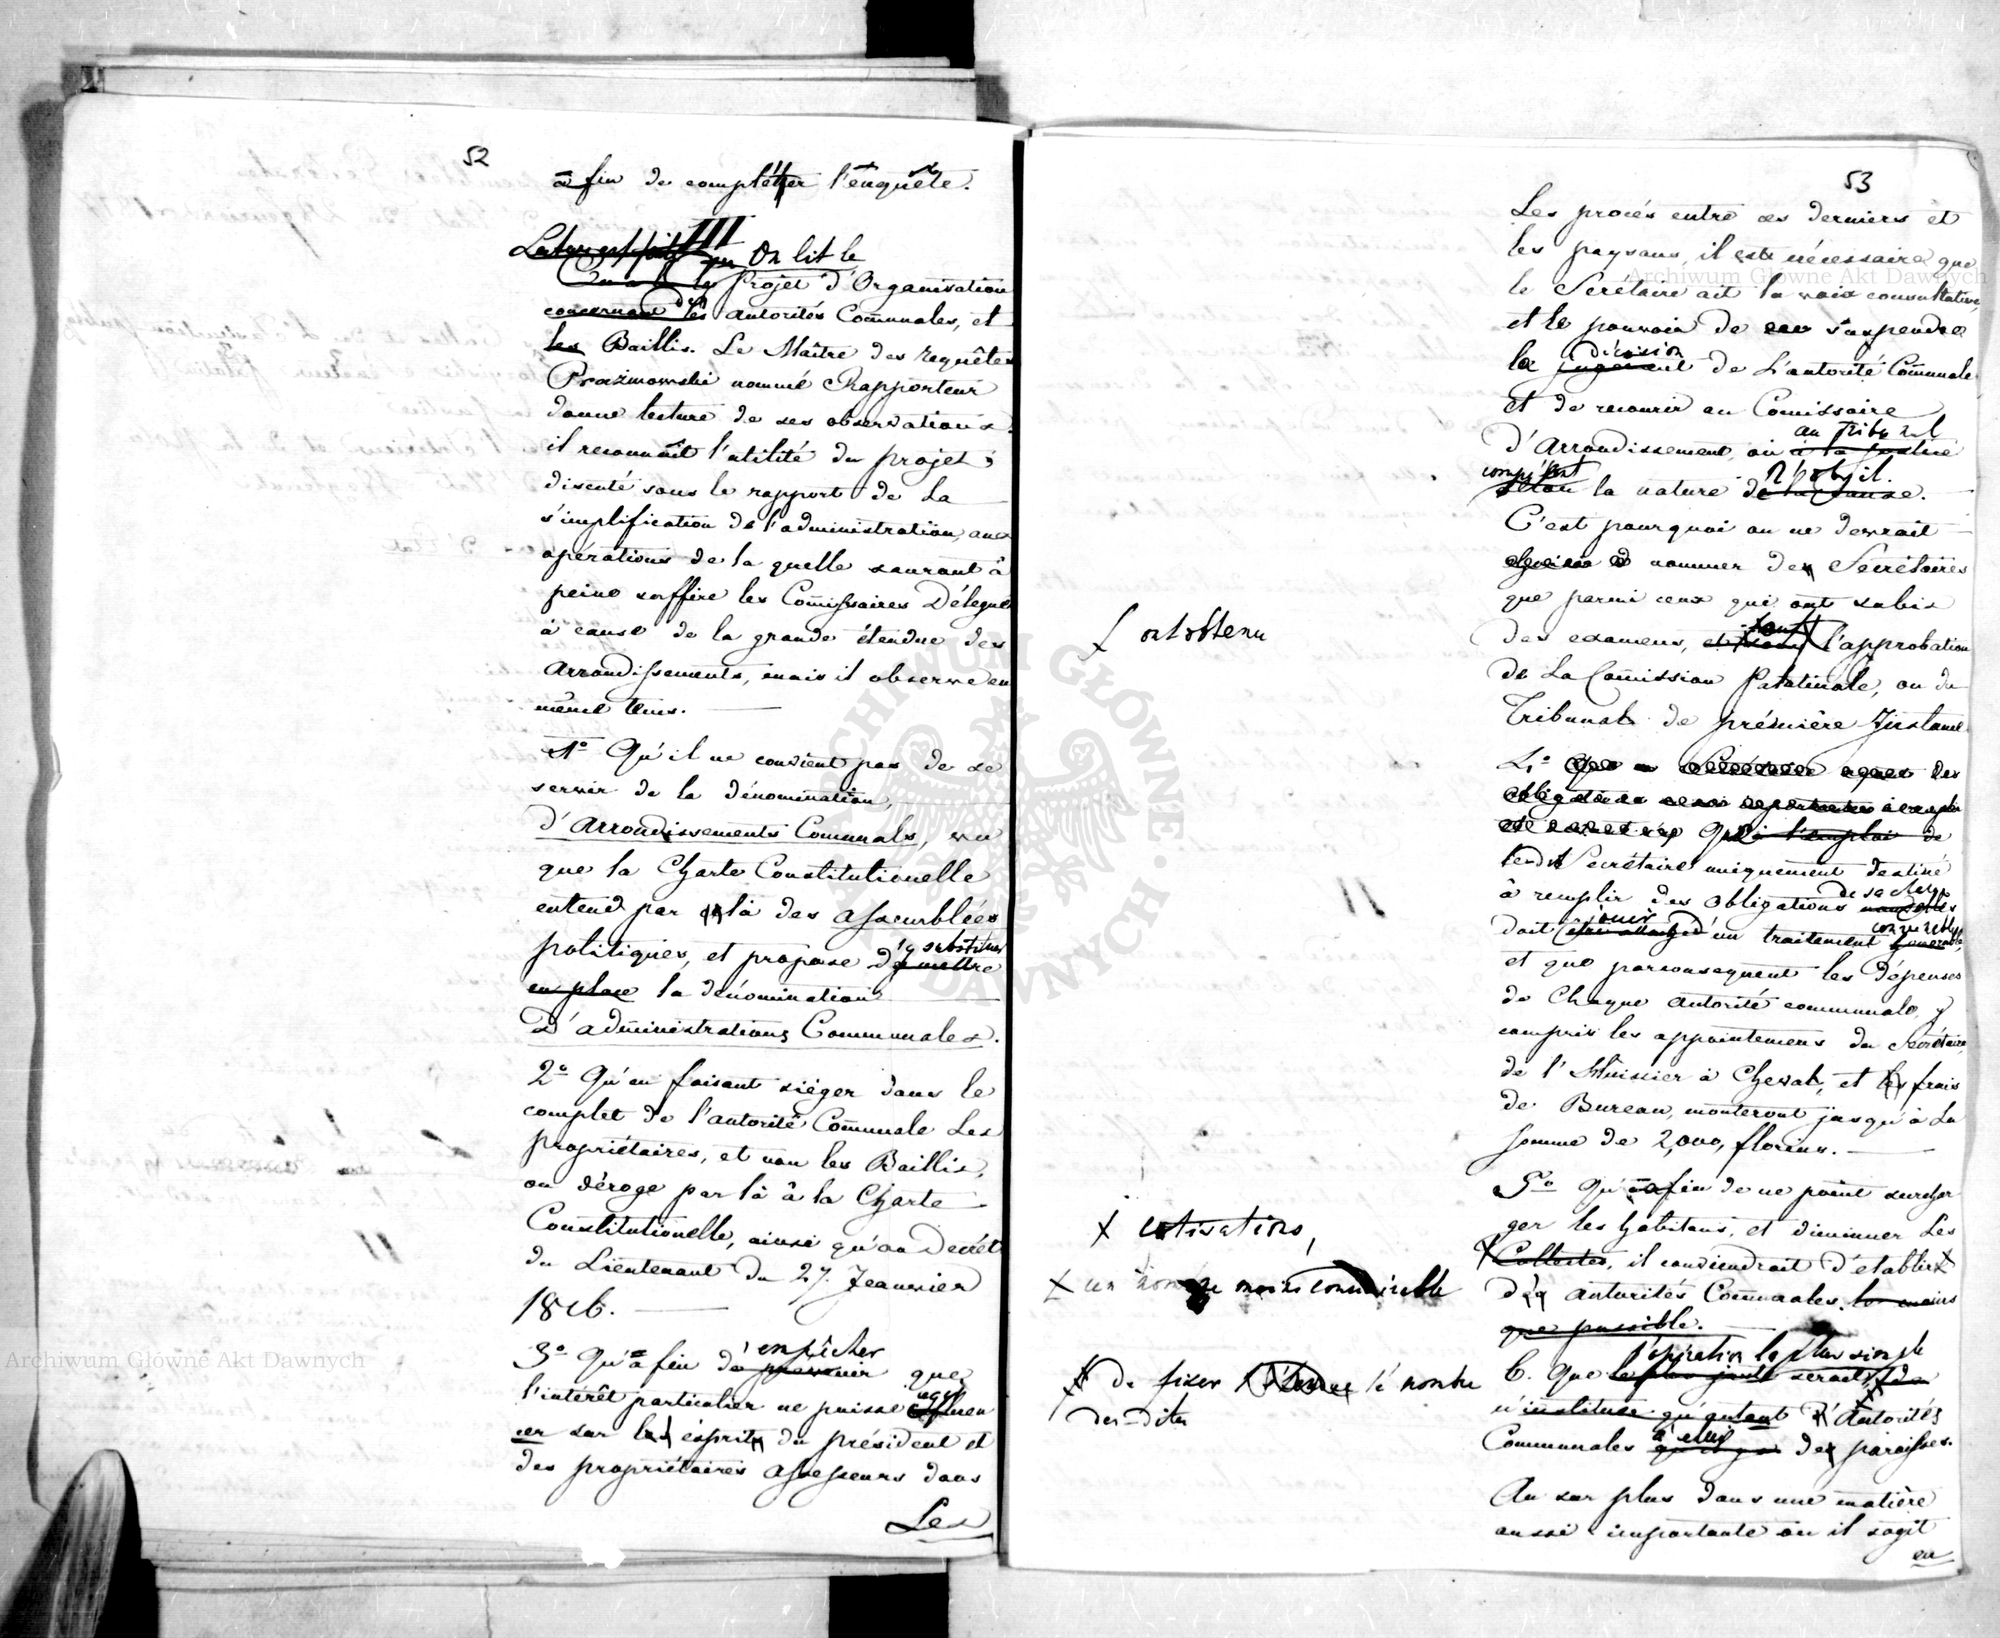 52
à fin de compléter l'enquête.
III
On lit le
Projet d'Organisation
concernant des autorités Communales, et
les Baillis. Le Maître des requêtes
Prażmowski nommé Rapporteur
donne lecture de ses observations.
il reconnoît l'utilité du projet
discuté sous le rapport de la
simplification de l'administration, aux
opérations de la quelle sauront à
peine suffire les Comissaires Délegués
à cause de la grande étendue des
arrondissements, mais il observe en
même tems.
1º Qu'il ne convient pas de se
servir de la dénomination,
d'Arrondissements Communals, vu
que la Charte Constitutionelle
entend par là des assemblées
politiques, et propose d'y substituer
mettre
en place la dénomination
D'administrations Communales.
2º Qu'en faisant siéger dans le
complet de l'autorité Communale Les
propriétaires, et non les Baillis,
on déroge par là à la Charte
Constitutionelle, ainsi qu'au Decrét
du Lieutenant du 27. Jeanvier
1816.
3º Qu'à fin d'empêcher
prévenir que
l'interêt particulier ne puisse influen
cer sur les ésprits du président et
des propriétaires assesseurs dans
Les
53
Les procés entre ces derniers et
les paysans, il este nécessaire que
le Secrétaire ait la voix consultative,
et le pouvoir de suspendre
décision
la jugement de L'autorité Comunale
et de recourir au Comissaire
au Tribunal
d'Arrondissement, ou à la justice
compétent l'objet.
selon la nature de la Cause.
C'est pourquoi on ne devrait
nommer des Secrétaires
que parmi ceux qui ont subis
des examens, et l'approbation
de La Comission Palatinale, ou du
Tribunal de prémière Instance
ont obtenu
4º Que des
obligations
Que l'emploi de
Secrétaire uniquement destiné
de sa charge
à remplir des obligations
jouir convenable
doit d'un traitement
et que parconsequent les dépenses
de Chaque autorité communale, y
compris les appointemens du Secrétaire,
de l'Huissier à Cheval, et les frais
de Bureau, monteront jusqu'à La
somme de 2,000, florins.
5º Qu'à fin de ne point surchar
ger les habitans, et diminuer Les
Collectes, il conviendrait d'etablir
des autorités Comunales. le moins
que possible.
cotisations,
un nombre moins considérable
l'opération la plus simple
6. Que la plus juste serait de
n'instituer qu'autant d'Autorités
à celui
Communales qu'il y a des paroisses.
de fixer le nombre
des dites
Au sur plus dans une matière
aussi importante où il s'agit
en
Archiwum Główne Akt Dawnych
Archiwum Główne Akt Dawnych
ARCHIWUM GŁÓWNE AKT DAWNYCH